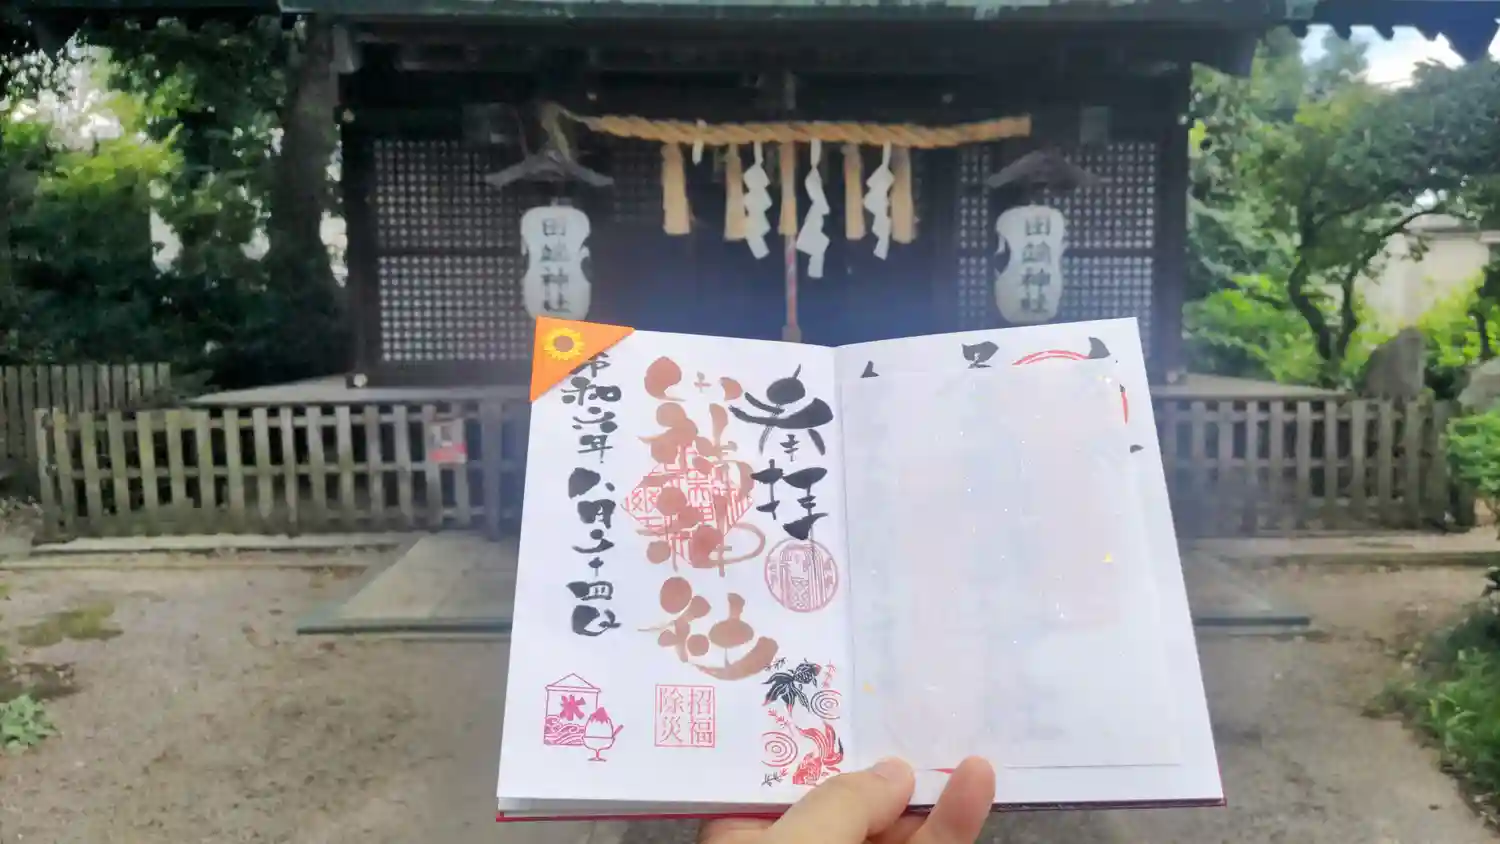 田端神社
田端神社
奉拝
田端神社
令和六年八月二十四日
氷
招福
除災